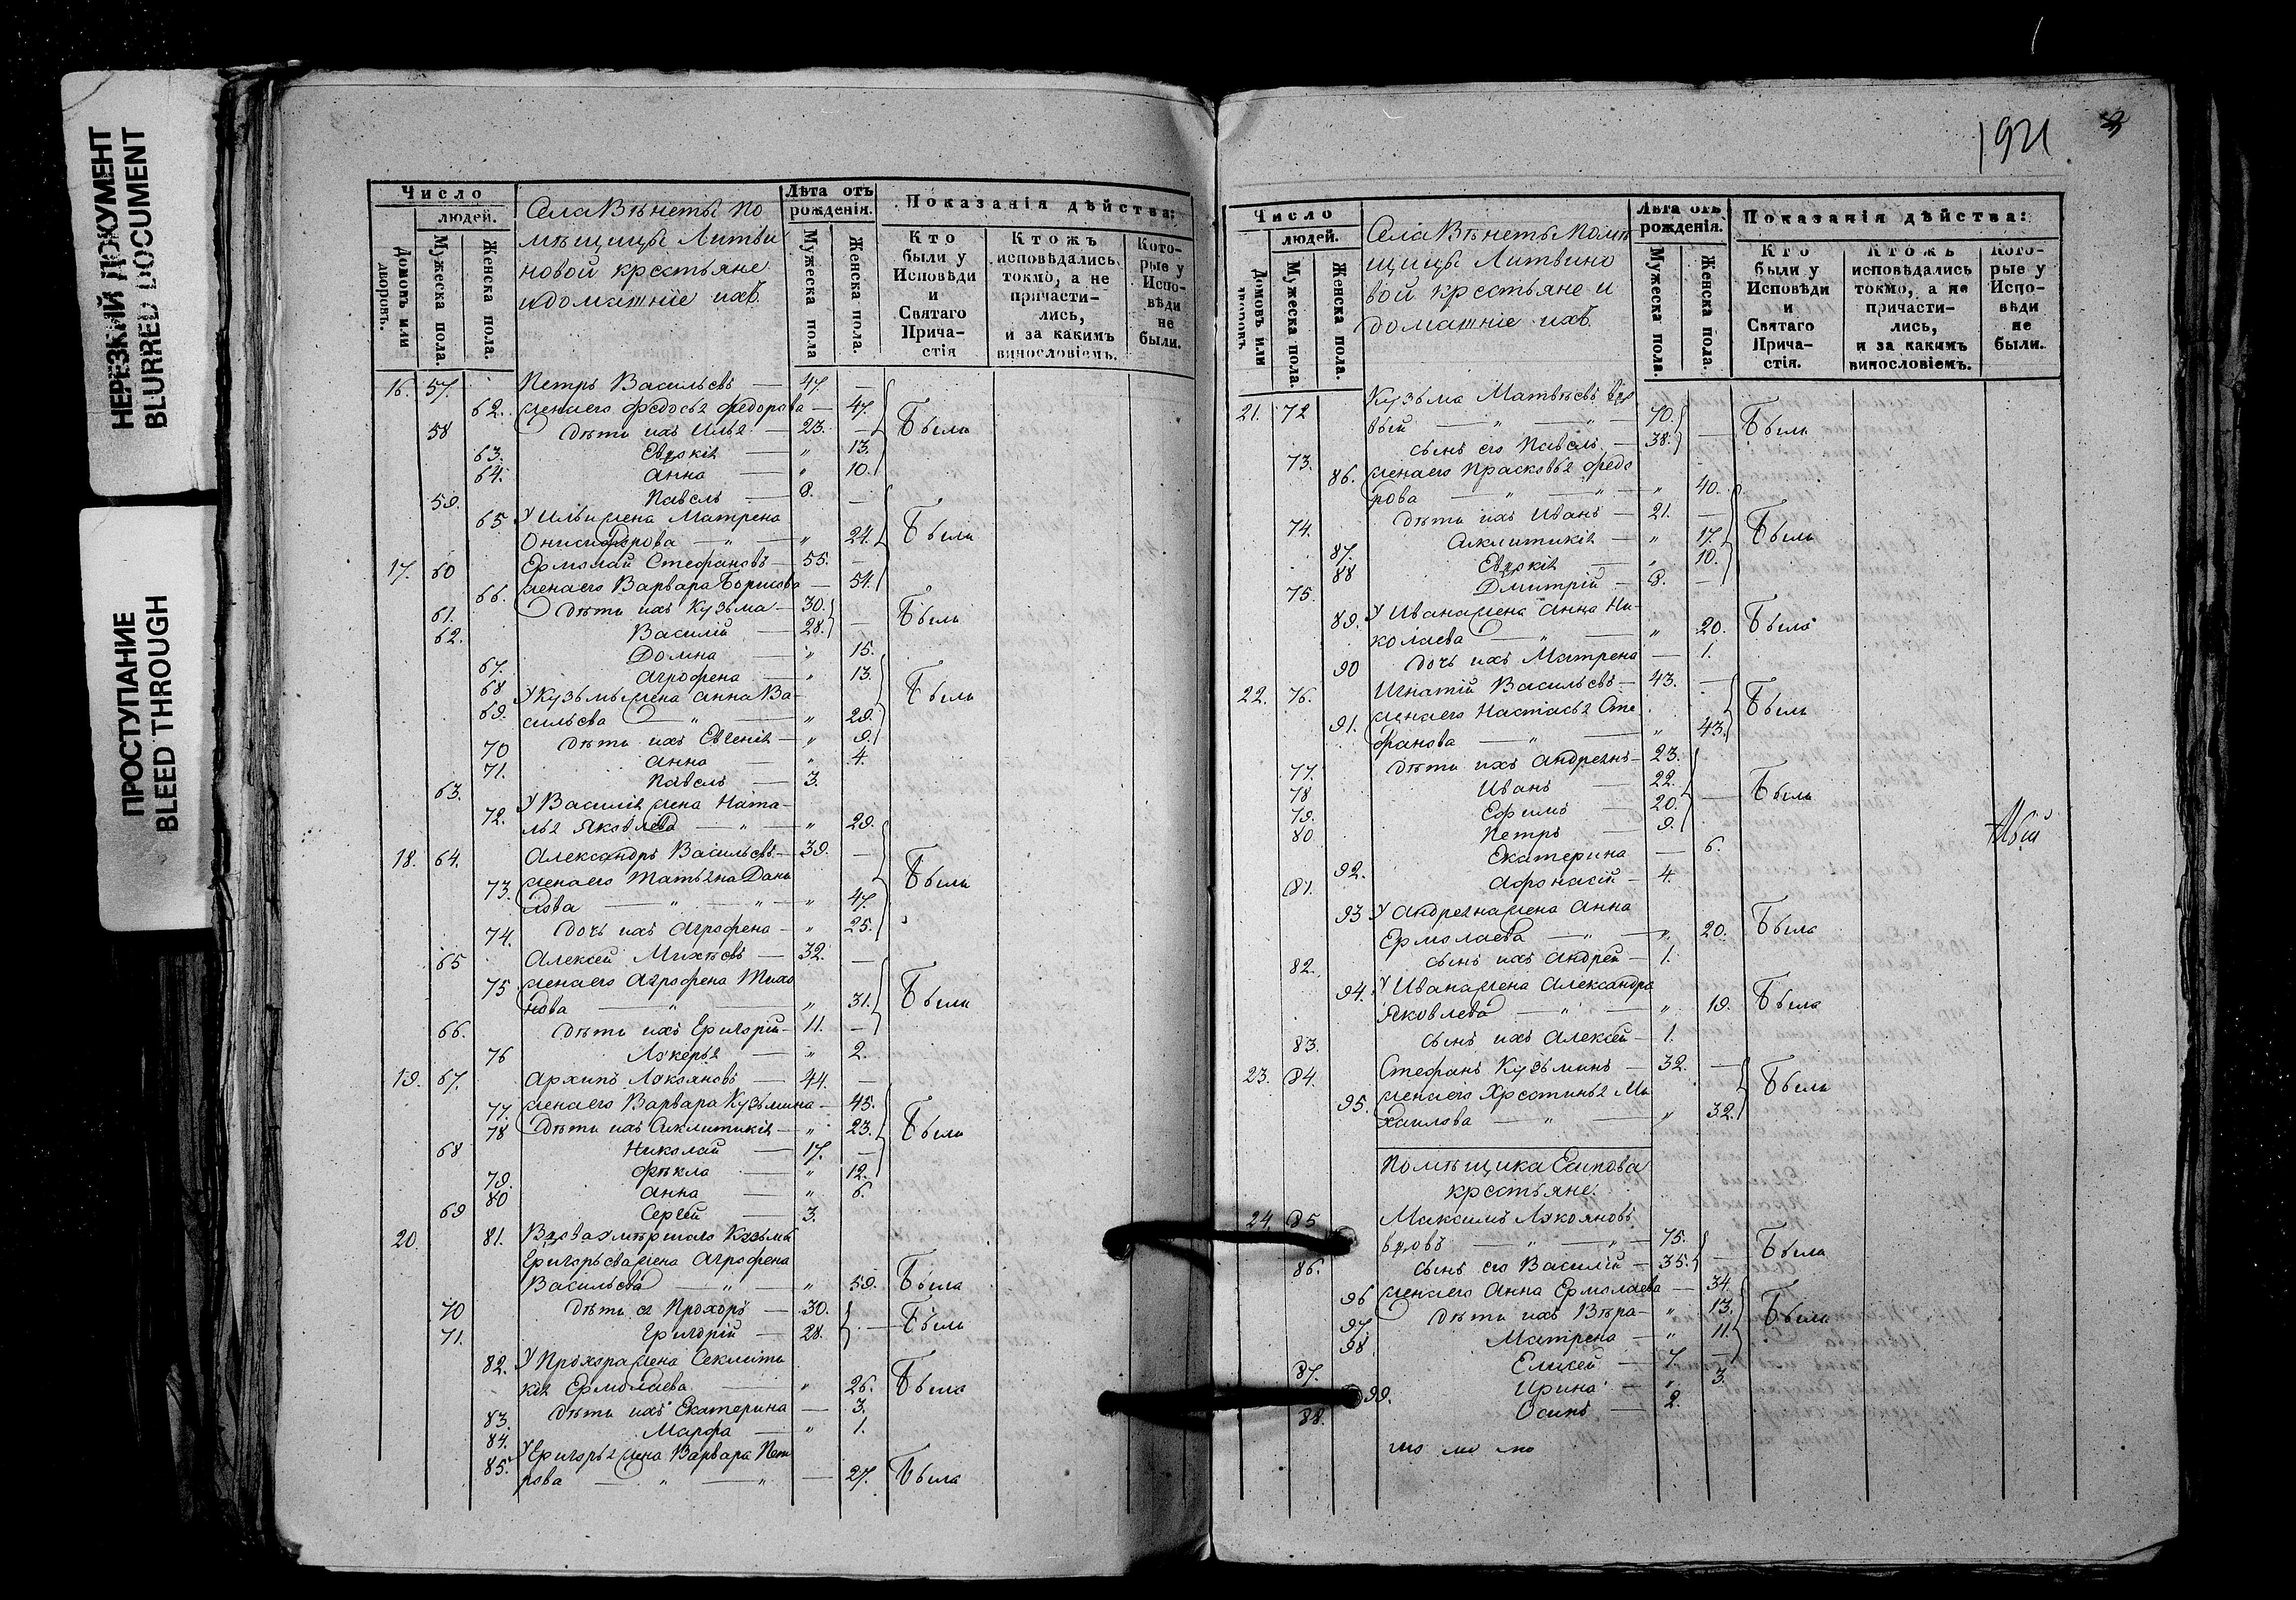 НЕРЕЗКИЙ ДОКУМЕНТ
BLURRED DOCUMENT
ПРОСТУПАНИЕ
BLEED THROUGH
Число
людей.
Домовъ или дворовъ.
Мужеска пола.
Женска пола.
Села Вѣнеты по
мѣщицы Литви
новой крестьяне
и домашніе ихъ.
Лѣта отъ
рожденія.
Мужеска пола
Женска пола.
Показанія дѣйства:
Кто
были у
Исповѣди
и
Святаго
Прича-
стія
Ктожъ
исповѣдались
токмо, а не
причасти-
лись,
и за какимъ
винословіемъ.
Кото-
рые у
Испо-
вѣди
не
были.
16. 57. Петръ Васильевъ — 47. —
62. жена его Федосья Федорова — 47. Были
58 дѣти ихъ Илья — 23. —
63. Евдокія — „ 13.
64. Анна — „ 10.
59. Павелъ — 8. —
65 У Ильи жена Матрена
Онисифорова — „ — „ 24. Были
17. 60 Ермолай Стефановъ — 55. —
66. жена его Варвара Борисова — 51.
61. дѣти ихъ Кузьма — 30. Были
62. Василій — 28. —
67. Домна — „ 15.
68. Агрофена — „ 13.
69. У Кузьмы жена Анна Ва- Были
сильева — „ — „ 29.
70 дѣти ихъ Евгенія — „ 9.
71. Анна — „ 4.
63. Павелъ — 3.
72. У Василія жена Ната-
лья Яковлева — „ — „ 29.
18. 64. Александръ Васильевъ — 39. —
73. жена его Татьяна Дани Были
лова — „ — „ — „ 47.
74. дочь ихъ Агрофена — „ 25.
65 Алексей Михѣевъ — 32. —
75 жена его Агрофена Тихо
нова — „ „ 31. Были
66. дѣти ихъ Григорій — 11. —
76 Лукерья — „ 2.
19. 67. Архипъ Лукояновъ — 44. —
77. жена его Варвара Кузьмина — 45.
78 Дѣти ихъ Сиклитикія — „ 23. Были
68 Николай — 17. —
79. Фекла — „ 12.
80 Анна — „ 6.
69 Сергей — 3.
20. 81. Вдова умершаго Кузьмы
Григорьева жена Агрофена
Васильева — „ — „ 59. Была
70 дѣти ея Прохоръ — 30. Были
71. Григорій — 28. —
82. У Прохора жена Секлити
кія Ермолаева — „ 26. Была
83. дѣти ихъ Екатерина — 3.
84. Марфа — „ 1.
85. У Григорья жена Варвара Пет
рова — „ — „ — 27. Была
192
Число
людей.
Домовъ или дворовъ
Мужеска пола.
Женска пола.
Села Вѣнеты помѣ
щицы Литвино
вой крестьяне и
домашніе ихъ.
Лѣта отъ
рожденія.
Мужеска пола.
Женска пола.
Показанія дѣйства:
Кто
были у
Исповѣди
и
Святаго
Прича-
стія.
Ктожъ
исповѣдались
токмо, а не
причасти-
лись,
и за какимъ
винословіемъ.
Кото-
рые у
Испо-
вѣди
не
были.
21. 72 Кузьма Матвѣевъ вдо
вый — „ — „ — 70. Были
73. сынъ его Павелъ — 38. —
86. жена его Прасковья Федо
рова — „ — „ — „ 40.
74. дѣти ихъ Иванъ — 21. —
87. Сиклитикія — „ 17. Были
88 Евдокія — „ 10.
75. Дмитрій — 8. —
89. У Ивана жена Анна Ни-
колаева — „ — „ 20. Была
90 дочь ихъ Матрена — 1.
22. 76. Игнатій Васильевъ — 43. —
91. жена его Настасья Сте Были
фанова — „ — „ 43.
77. дѣти ихъ Андреянъ — 23.
78 Иванъ — 22.
79. Ефимъ — 20. — Были
80 Петръ — 9.
92. Екатерина — 6.
81. Афонасій — 4.
93 У Андреяна жена Анна
Ермолаева — „ — „ 20. Была
82. сынъ ихъ Андрей — 1.
94. У Ивана жена Александра
Яковлева — „ — „ 19. Была
83. сынъ ихъ Алексей — 1.
23. 84. Стефанъ Кузьминъ — 32. —
95. жена его Хрестинья Ми Были
хаилова — „ — „ 32.
Помѣщика Есипова
крестьяне.
24. 85 Максимъ Лукояновъ
вдовъ — „ — „ — 75. Были
86. сынъ его Василій — 35. —
96 жена его Анна Ермолаева — 34.
97 дѣти ихъ Вѣра — „ 13. Были
98 Матрена — „ 11.
87. Елисей — 7. —
99. Ирина — „ 3.
88. Осипъ — 2.